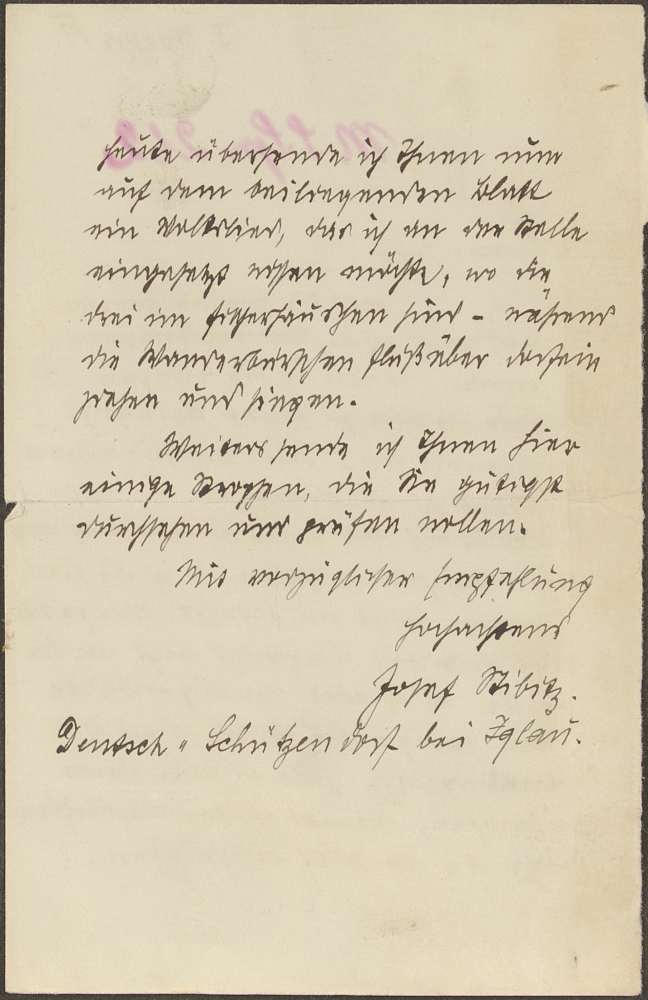 heute übersende ich Ihnen nun
auf dem beiliegenden Blatt
ein Volkslied, das ich an der Stelle
eingesetzt wissen möchte, wo die
drei im Fischerhäuschen sind - während
die Wanderburschen flußüber dorfein
ziehen und singen.
Weiters sende ich Ihnen hier
einige Strophen, die Sie gütigst
durchsehen und prüfen wollen.
Mit vorzüglicher Empfehlung
hochachtend
Josef Stibitz.
Deutsch-Schützendorf bei Iglau.